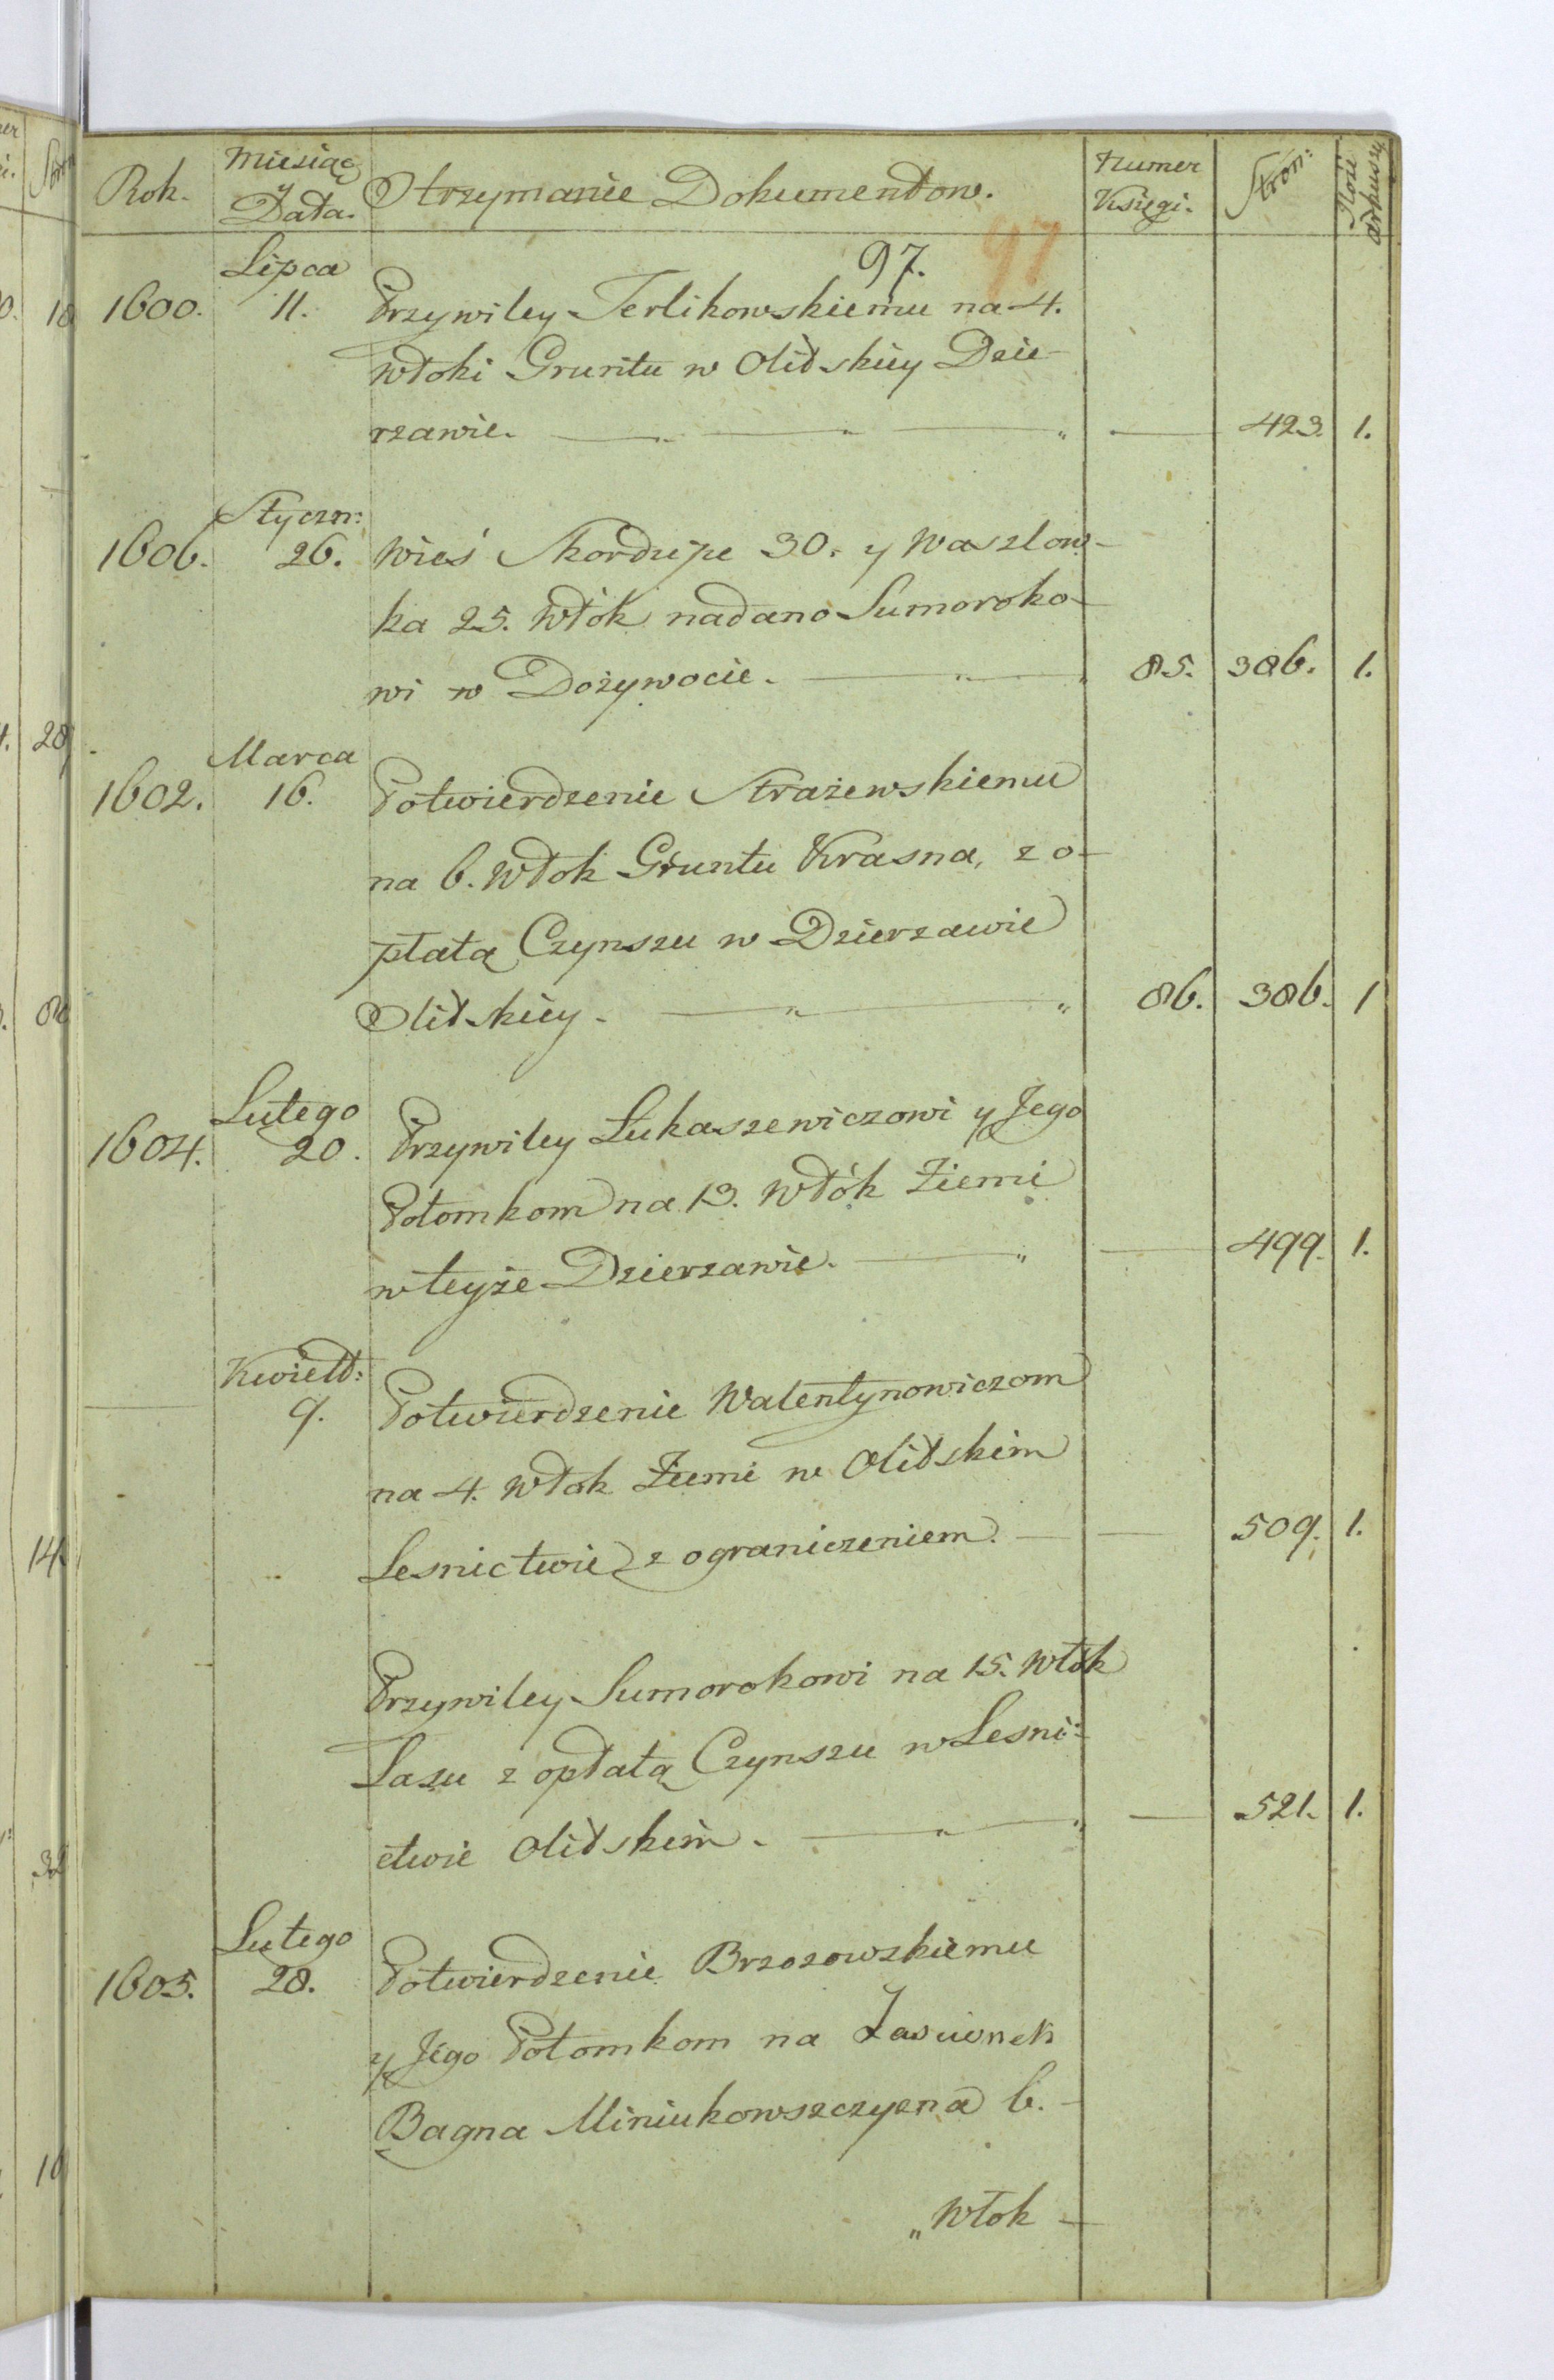 Rok. Miesiąc y Data. Otrzymanie Dokumentow. Numer Księgi. Stron: Ilość arkuszy
97. 97
Lipca
1600. 11. Przywiley Terlikowskiemu na 4.
włoki Gruntu w Olitskiey Dzie-
rzawie. — 423. 1.
Styczn:
1606. 26. Wieś Skordupe 30. y Waszlow-
ka 25. Włók nadano Sumoroko-
wi w Dożywocie. — 85. 386. 1.
Marca
1602. 16. Potwierdzenie Strażewskiemu
na 6. Włok Gruntu Krasna, z o-
płatą Czynszu w Dzierzawie
Olitskiey. — 86. 386. 1
Lutego
1604. 20. Przywiley Łukaszewiczowi y Jego
Potomkom na 13. Włók Ziemi
w teyże Dzierzawie. — 499. 1.
Kwiet:
— 9. Potwierdzenie Walentynowiczom
na 4. Włok Ziemi w Olitskim
Lesnictwie z ograniczeniem. — 509. 1.
Przywiley Sumorokowi na 15. Włók
Lasu z opłatą Czynszu w Lesni-
ctwie Olitskim. — 521. 1.
Lutego
1605. 28. Potwierdzenie Brzozowskiemu
y Jego Potomkom na Zascionek
Bagna Miniukowszczyzna 6. -
„Włok —
10
28
14
32